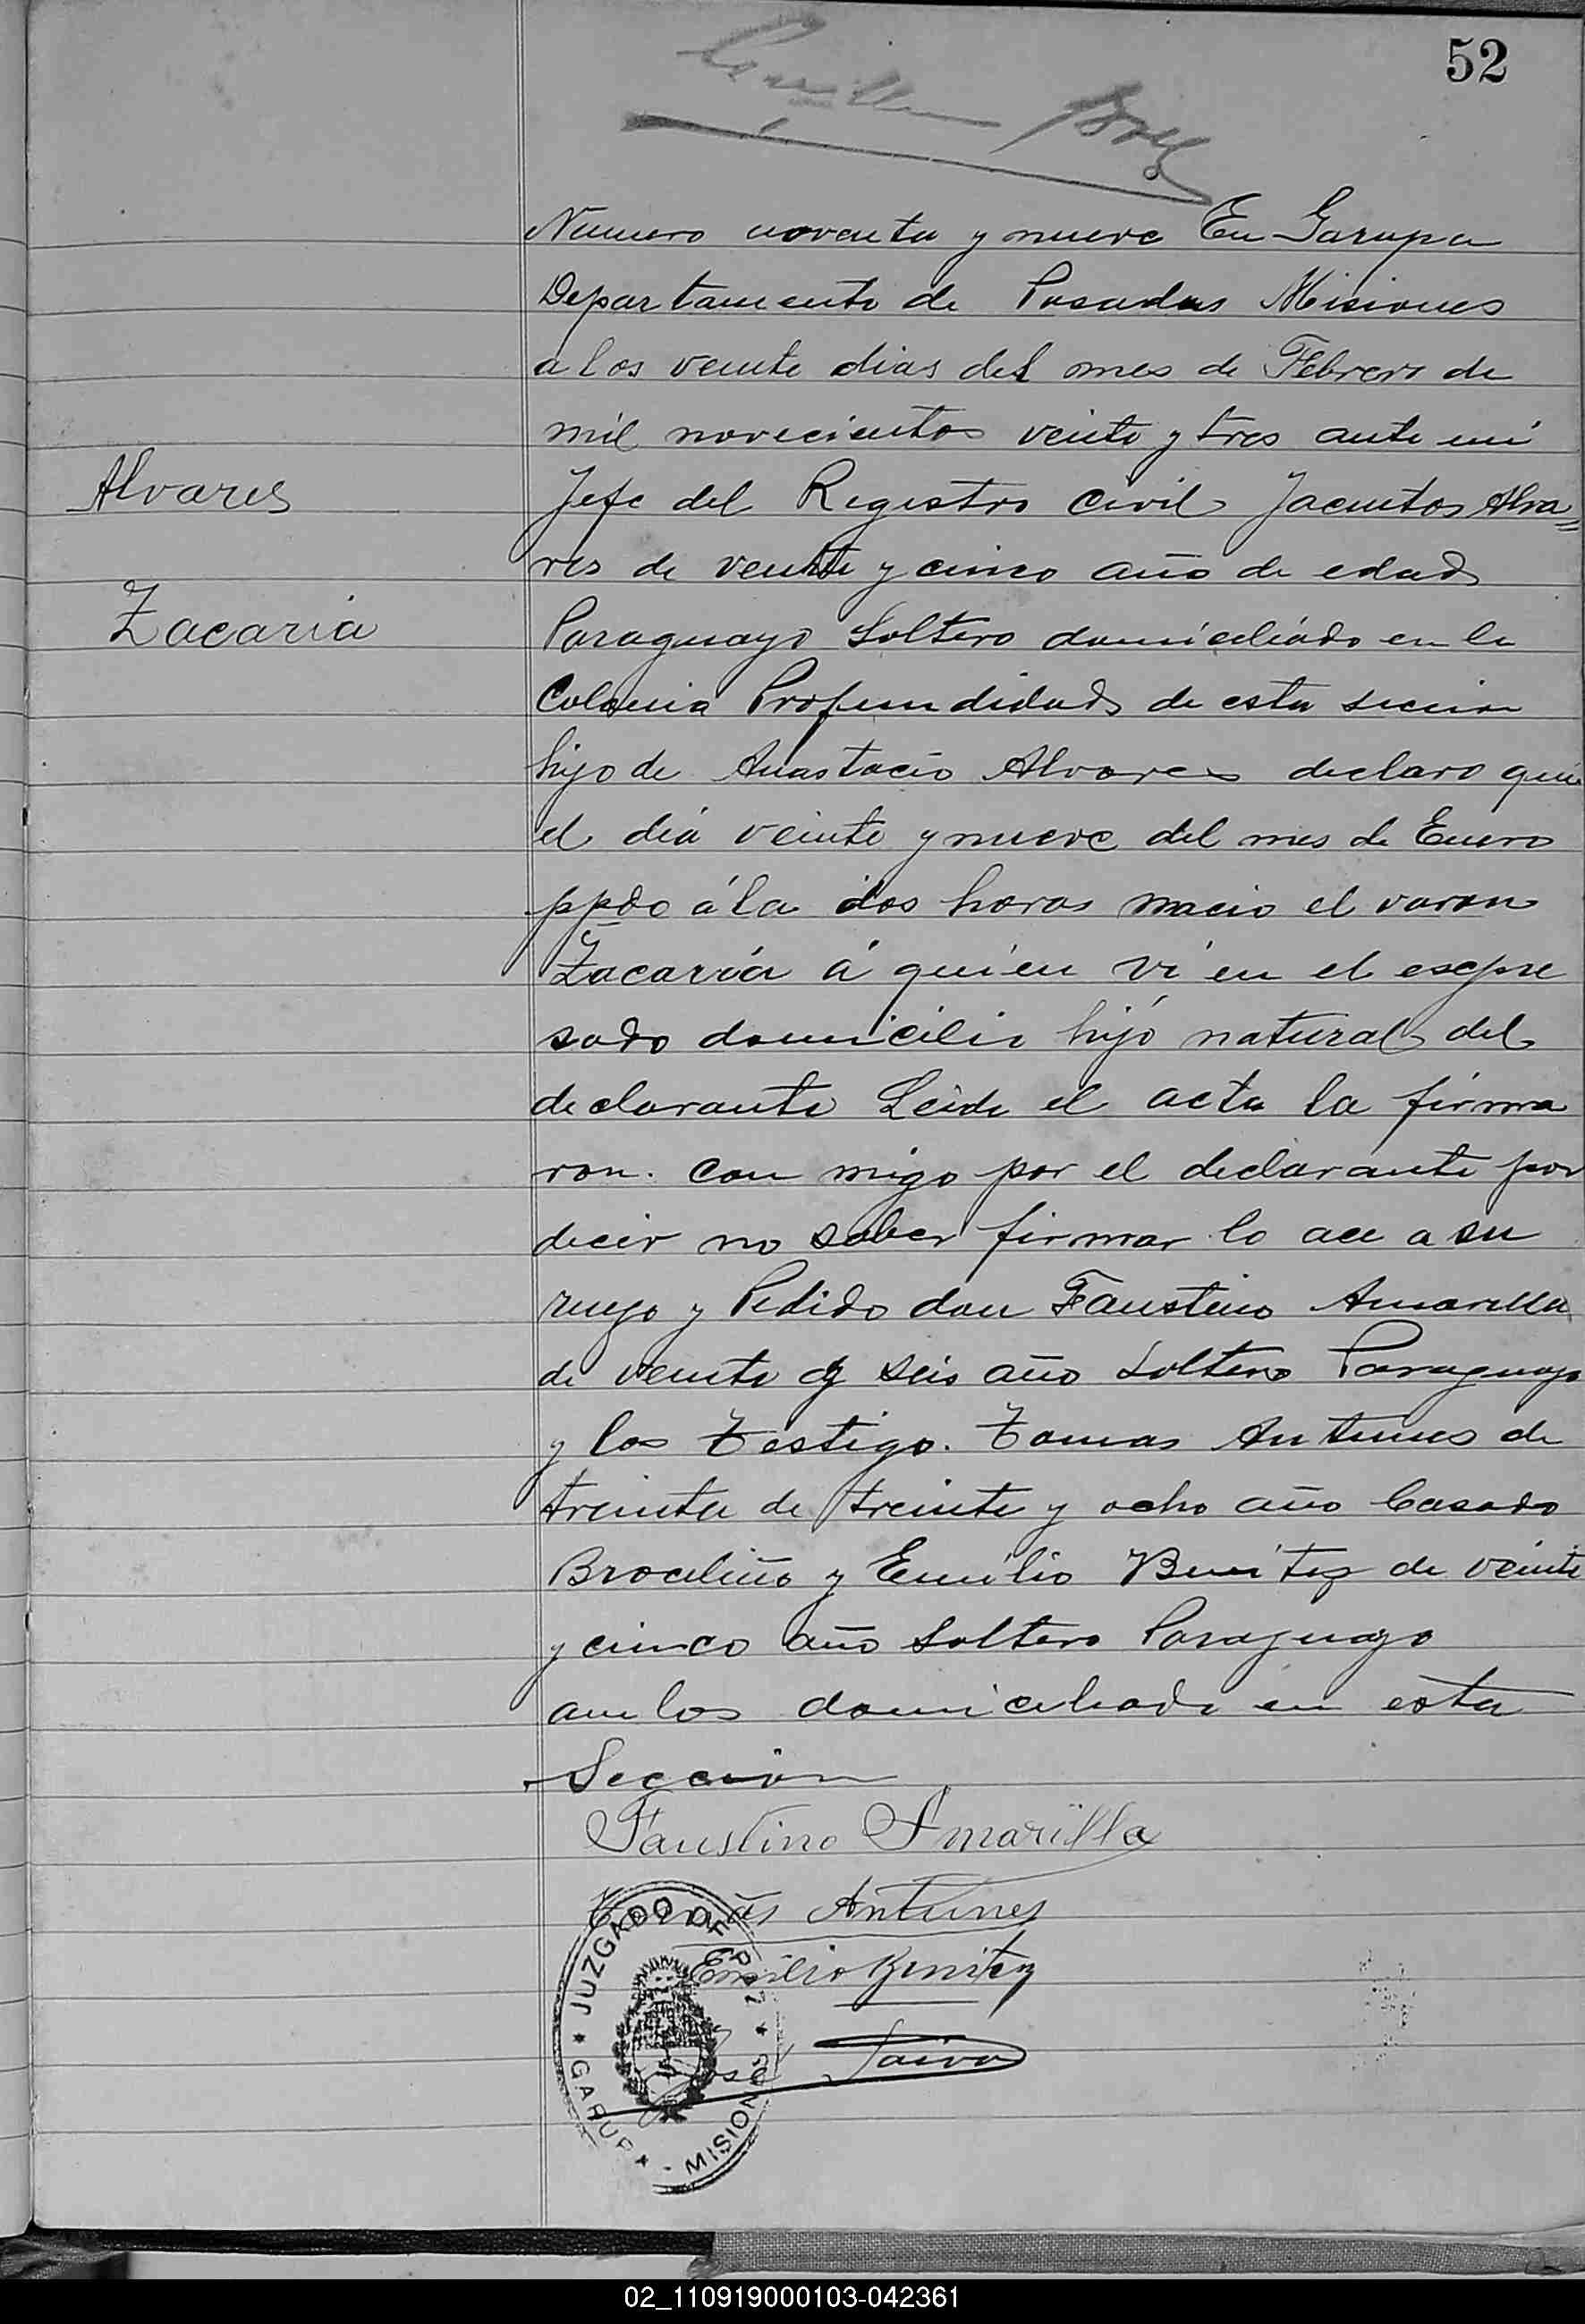 52
Numero noventa y nueve En Garupa
Departamento de Posadas Misiones
a los veinte dias del mes de Febrero de
mil novecientos veinte y tres ante mi
Alvares
Jefe del Registro Civil Jacintos Alva=
res de veinte y cinco año de edad
Zacaria
Paraguayo Soltero domiciliado en la
Colonia Profundidad de esta secion
hijo de Anastacio Alvares declaro que
el dia veinte y nueve del mes de Enero
ppdo á la dos horas nacio el varon
Zacaria á quien vi en el espre
sado domicilio hijo natural del
declarante Leida el acta la firma
ron. con migo por el declarante por
decir no saber firmar lo ace a su
ruego y Pedido don Faustino Amarilla
de veinte y seis año Soltero Paraguayo
y los Testigo. Tomas Antunes de
treinta de treinta y ocho año Casado
Braciliño y Emilio Benitez de veinte
y cinco año Soltero Paraguayo
ambos domiciliado en esta
Seccion
Faustino Amarilla
Tomás Antunes
Emilio Benitez
José Paiva
JUZGADO DE PAZ
GARUPA
MISIONES
02_110919000103-042361